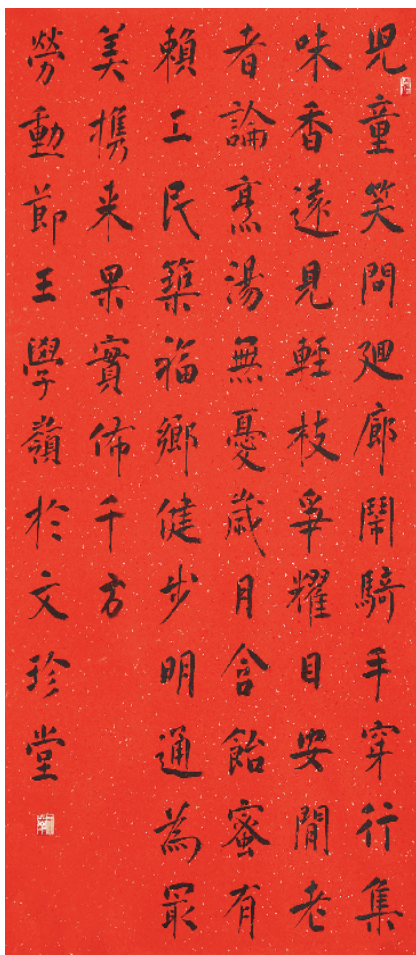 兒童笑問廻廊鬧騎手穿行集
味香遠見輕枝爭耀目安閒老
者論烹湯無憂歲月含飴蜜有
賴工民築福鄉健步明通為最
美携来果實佈千方
勞動節王學嶺於文珍堂